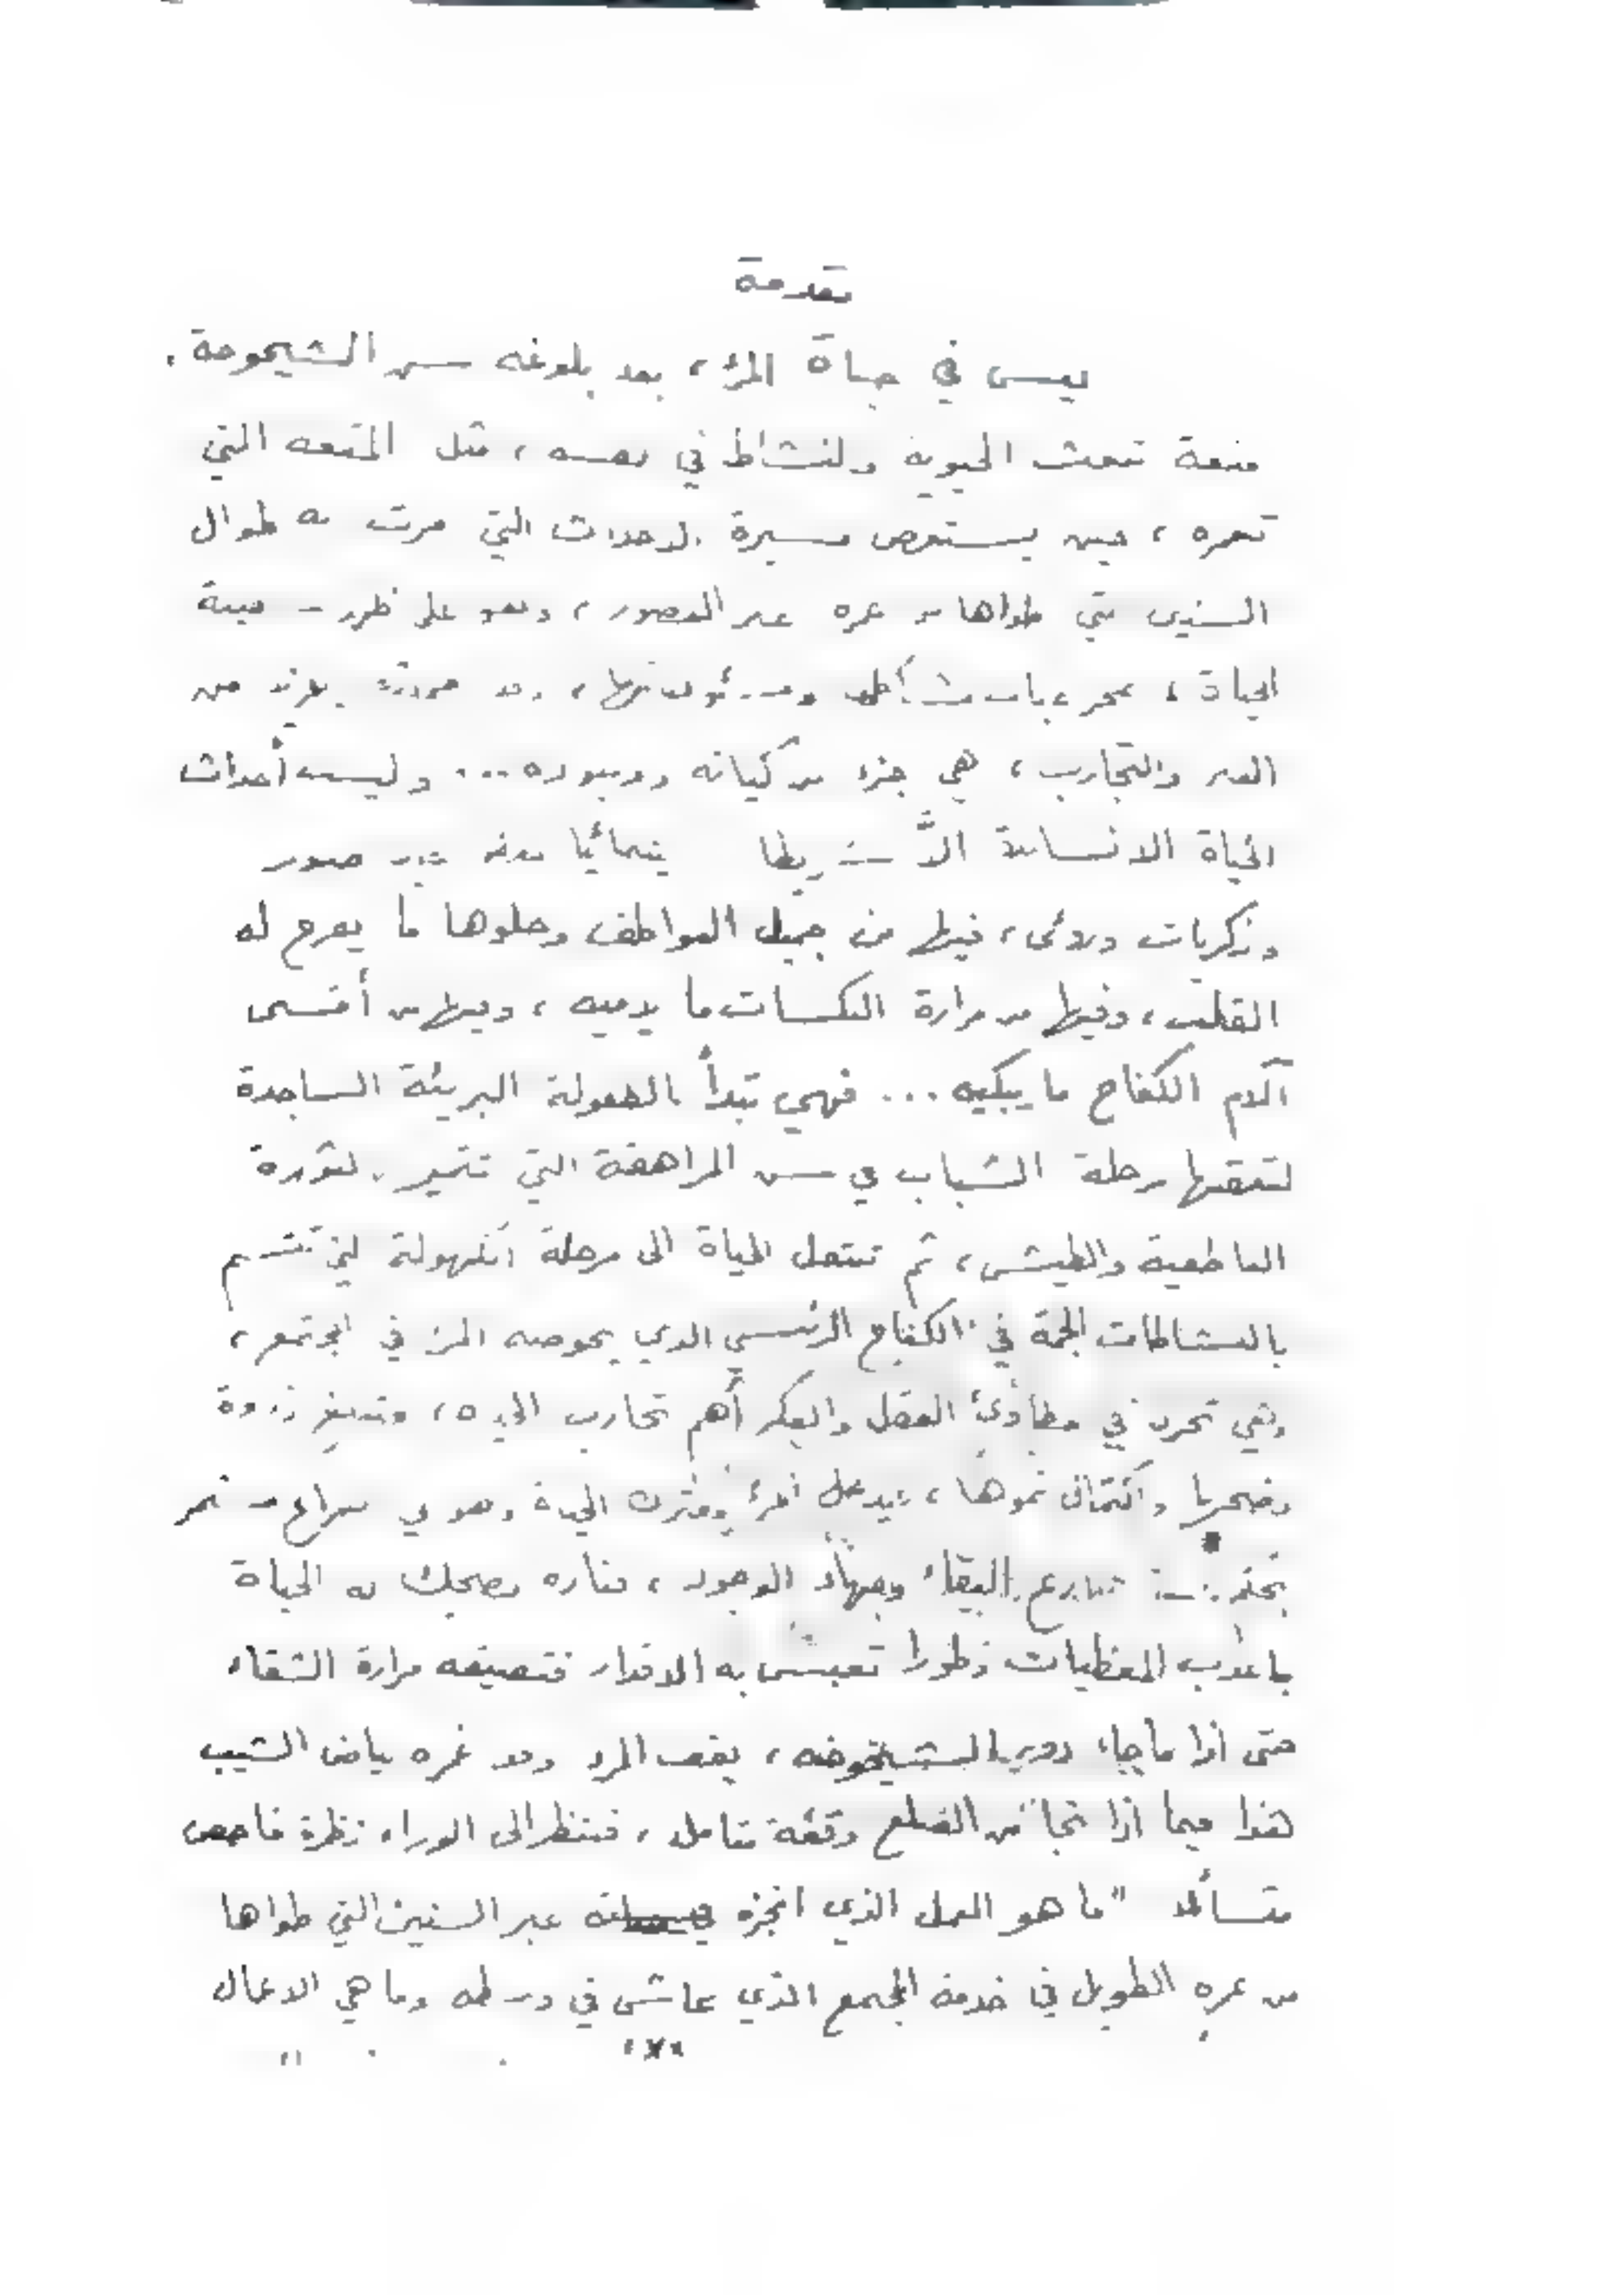 مقدمة
ليس في حياة المرء، بعد بلوغه سن الشيخوخة.
متعة تبعث الحيوية والنشاط في نفسه، مثل المتعه التي
تغمره، حين يستعرض مسيرة الاحداث التي مرت به طوال
السنين التي طواها من عمره عبر العصور، وهو على
الحياة، من
والتجارب، هي جزء من كيانه ووجوده... وليست أحداث
الحياة الانسانية الاَّ شريطا سينمائيا صور
وذكريات ورؤى، فيها من جميل العواطف وحلوها ما يفرح له
القلب، وفيها من مرارة النكسات ما يدميه، وفيها من أقسى
آلام الكفاح ما يبكيه... فهي تبدأ بالطفولة البريئة الساجدة
لتعقبها مرحلة الشباب في سن المراهقة التي تتميز بالثورة
العاطفية والطيش، ثم تنتقل الحياة الى مرحلة الكهولة التي تتسم
بالنشاطات الجمة في الكفاح الرئيسي الذي يخوضه المرء في المجتمع،
وهي تخزن في مطاوئ العقل والفكر أهم تجارب الحياه، وتبلغ ذروة
واكتمال نموها، الحياة وهو في صراع
البقاء وجهاد الوجود، فتاره تضحك له الحياة
باعذب المعطيات وطورا تعبس به الاقدار فتصيبه مرارة الشقاء
حتى اذا ما جاء دور الشيخوخه، يقف المرء وقد غمره بياض الشيب
هذا فيما اذا نجا من الصلع وقفة متامل، فينظر الى الوراء نظرة فاحص
متسائلا "ما هو العمل الذي انجزه عبر السنين التي طواها
من عمره الطويل في خدمة المجتمع الذي عاش في وسطه وما هي الاعمال